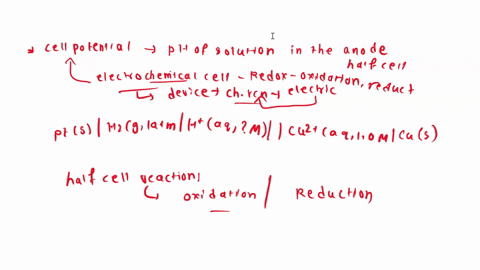 * cell potential → pH of solution in the anode
half cell
electrochemical cell - Redox - oxidation, reduct
↳ device → ch. rxn → electric
pt(s) | H2(g, 1atm | H+(aq, ?M) || Cu2+(aq, 1.0M | Cu(s)
half cell reactions
↳ oxidation / Reduction